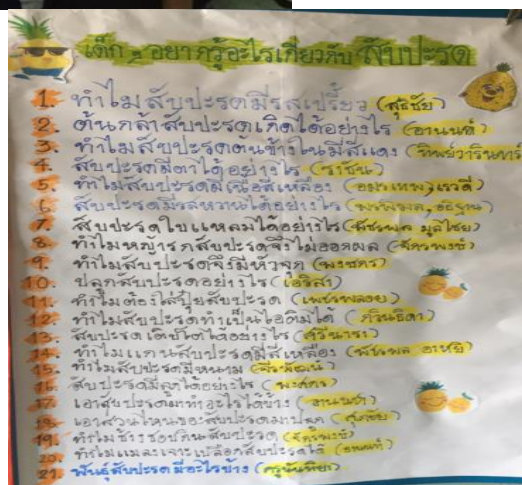 เด็ก ๆ อยากรู้อะไรเกี่ยวกับ สับปะรด
1. ทำไมสับปะรดมีรสเปรี้ยว (สุธิชัย)
2. ต้นกล้าสับปะรดเกิดได้อย่างไร (อานนท์)
3. ทำไมสับปะรดต้นข้างในมีสีแดง (ทิพย์วารินทร์)
4. สับปะรดมีตาได้อย่างไร (ราชัน)
5. ทำไมสับปะรดมีเนื้อสีเหลือง (อมรเทพ, เรวดี)
6. สับปะรดมีรสหวานได้อย่างไร
7. สับปะรดใบแหลมได้อย่างไร
8. ทำไมหญ้ารกสับปะรดจึงไม่ออกผล (จักรพงษ์)
9. ทำไมสับปะรดจึงมีหัวจุก (พงศกร)
10. ปลูกสับปะรดอย่างไร (เอริสา)
11. ทำไมต้องใส่ปุ๋ยสับปะรด (เพชรพลอย)
12. ทำไมสับปะรดทำเป็นไอติมได้ (ภวินธิดา)
13. สับปะรดเติบโตได้อย่างไร
14. ทำไมแกนสับปะรดมีสีเหลือง
15. ทำไมสับปะรดมีหนาม
16. สับปะรดมีลูกได้อย่างไร (พงศกร)
17. เอาสับปะรดมาทำอะไรได้บ้าง (อานนท์)
18. เอาส่วนไหนของสับปะรดมาปลูก
19. ทำไมช้างชอบกินสับปะรด (จักรพงษ์)
20. ทำไมแมลงเจาะเปลือกสับปะรดได้
21. พันธุ์สับปะรดมีอะไรบ้าง (ครูนันทิยา)